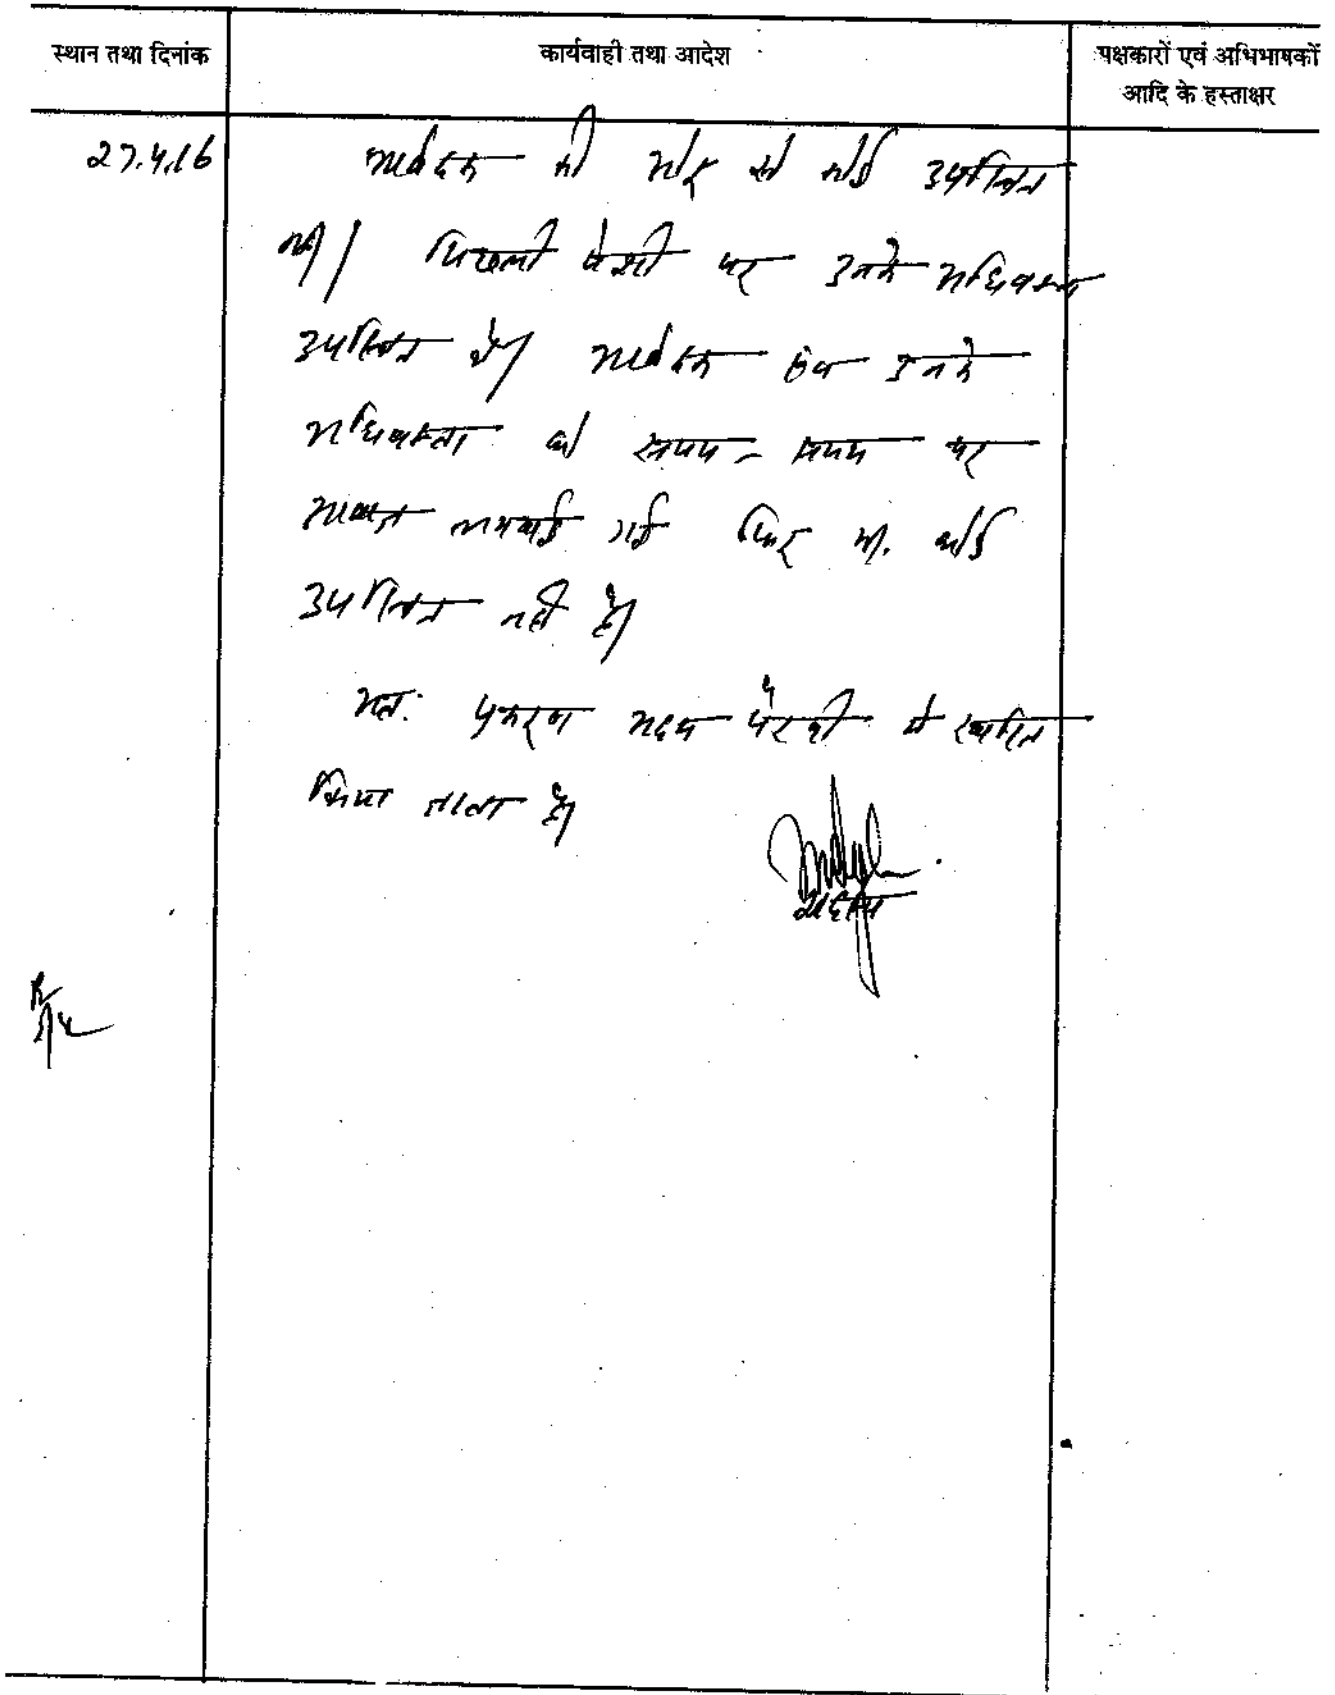 स्थान तथा दिनांक
कार्यवाही तथा आदेश
पक्षकारों एवं अभिभाषकों
आदि के हस्ताक्षर
27.4.16
आवेदक की ओर से कोई उपस्थित
नहीं। पिछली पेशी पर उनके अधिवक्ता
उपस्थित थे। आवेदक एवं उनके
अधिवक्ता को समय-समय पर
आवाज लगवाई गई फिर भी कोई
उपस्थित नहीं है।
अतः प्रकरण अदम पैरवी में
किया जाता है।
सदस्य